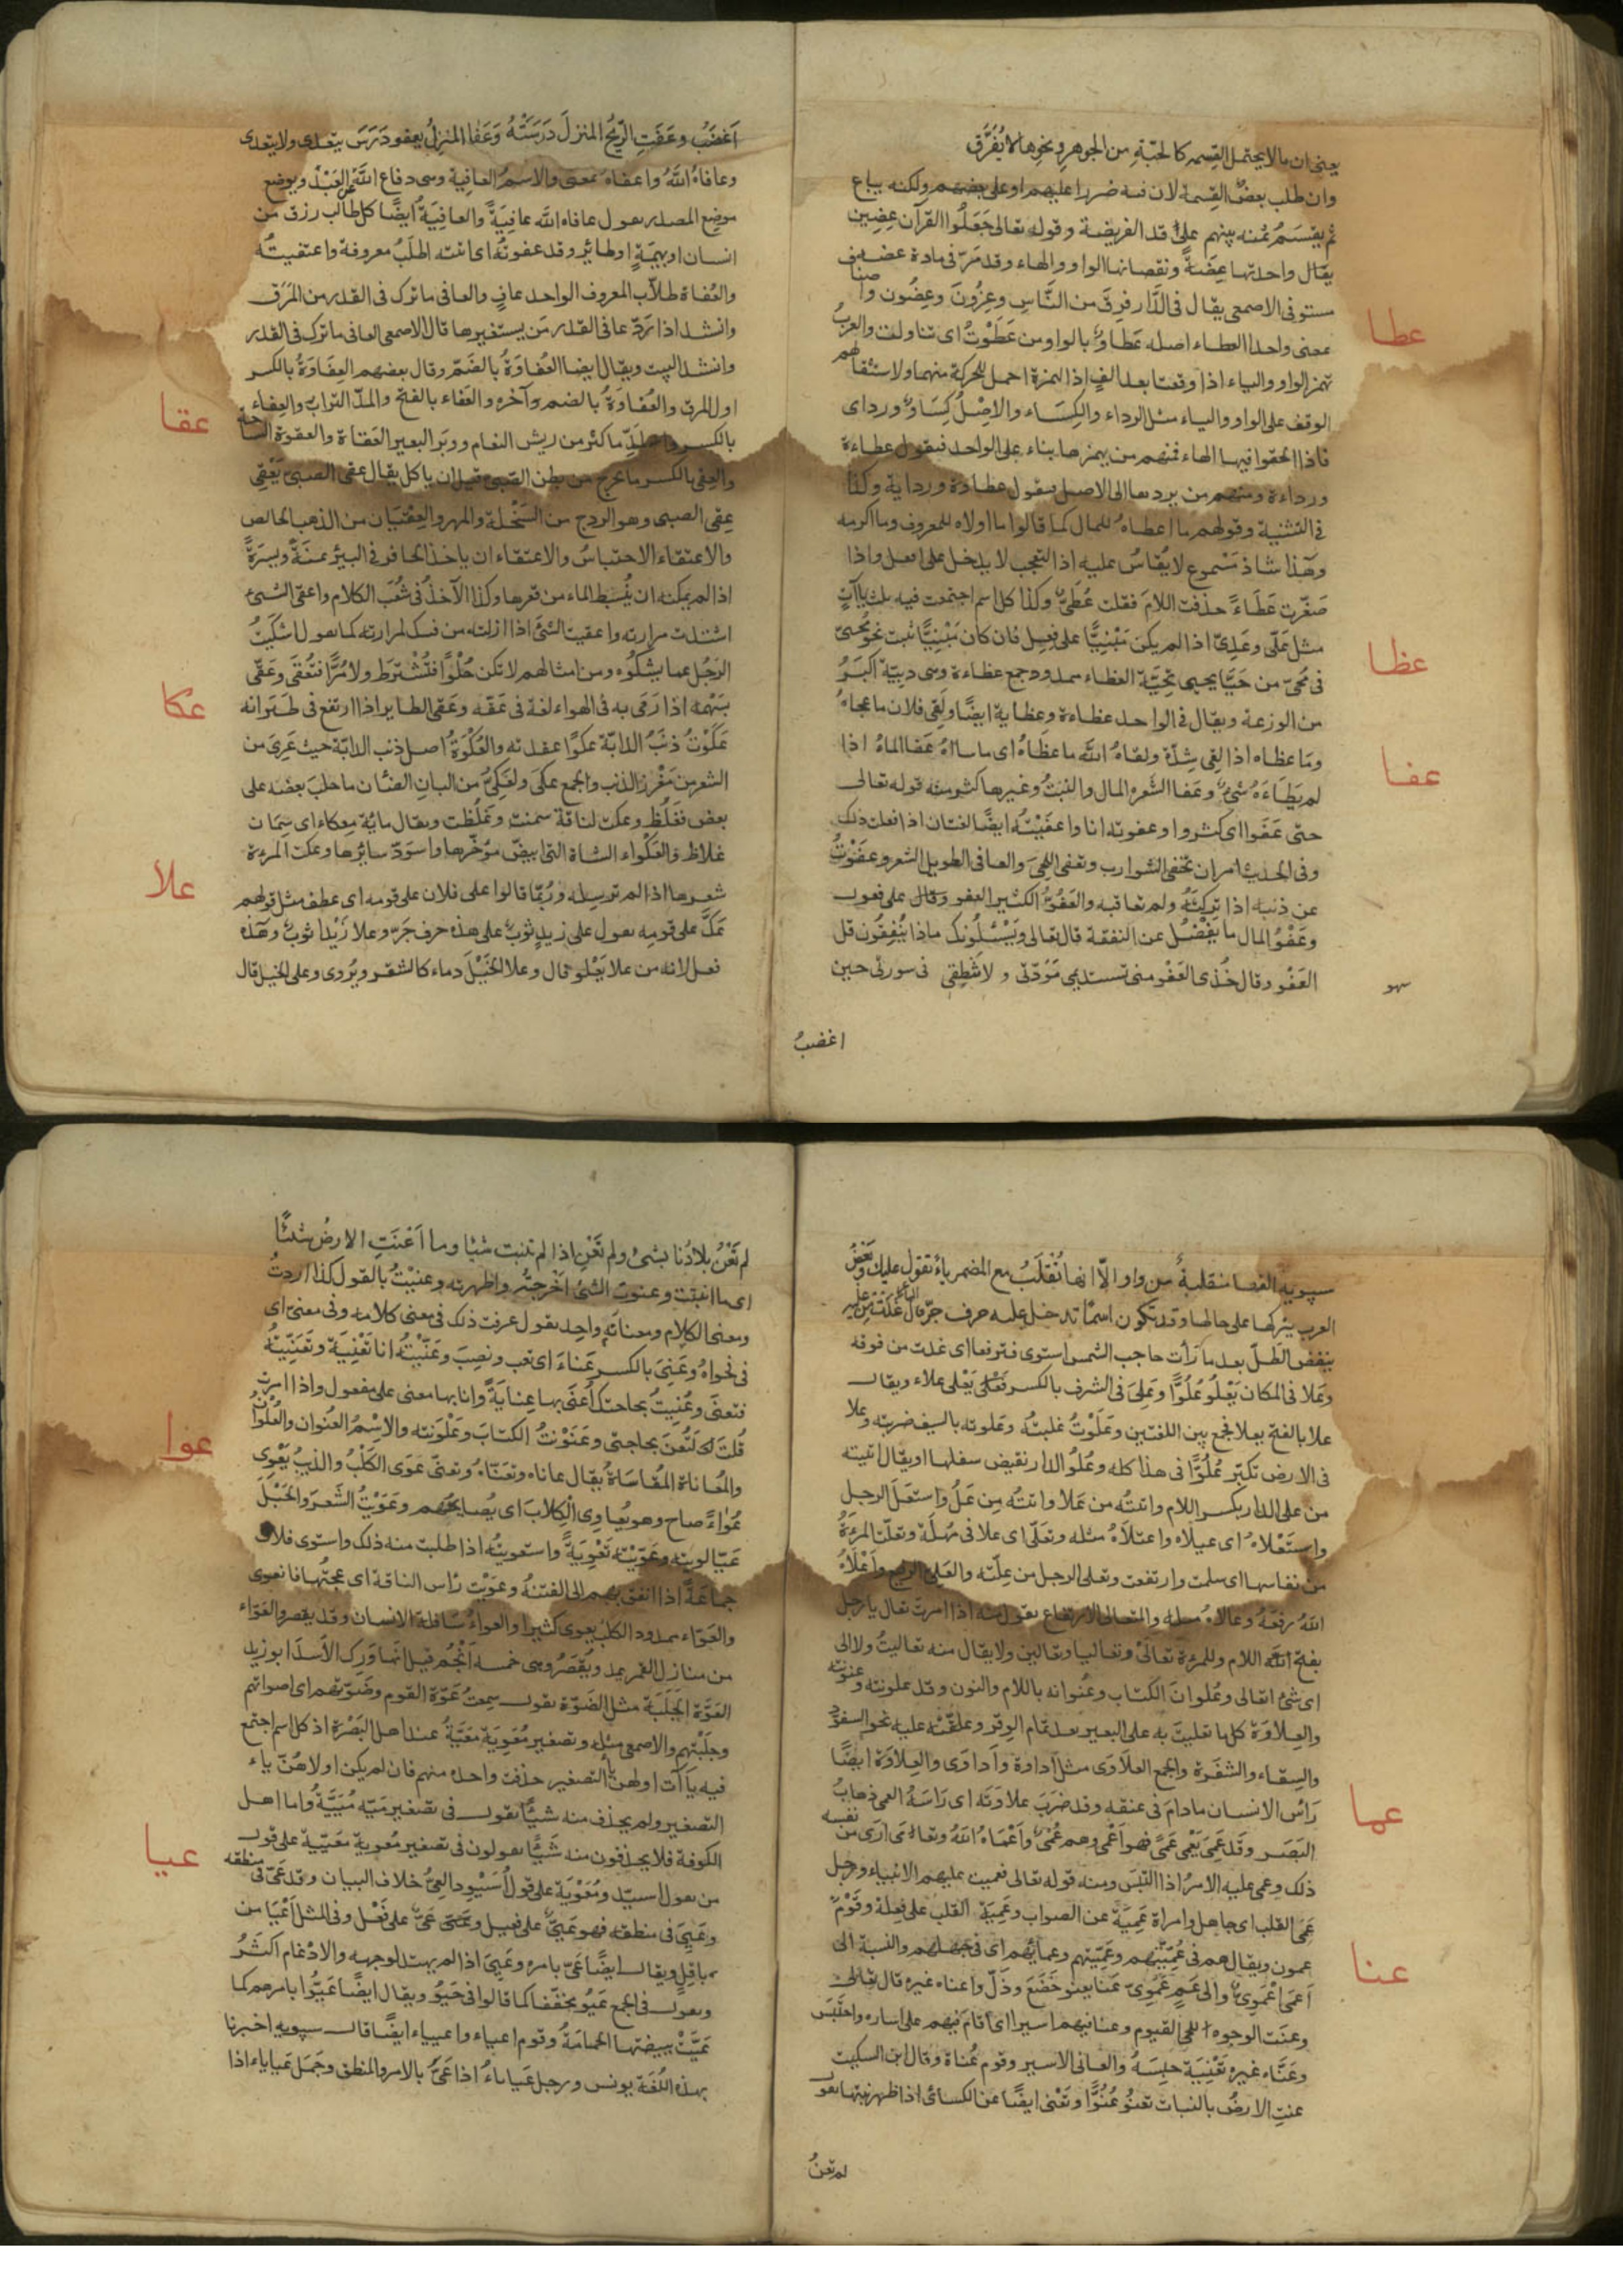 يعنى ان ما لا يحتمل القسمه كالحبّة من الجوهر ونحوها لا يُفَرَّق
وان طلب بعضٌ القسمة لان فيه ضررا عليهم او على بعضهم ولكنه يباع
ثم يُقْسَمُ ثمنه بينهم على قد الفريضة وقوله تعالى جَعَلُوا القرآن عِضِين
يقال واحدتها عِضَةٌ ونقصانها الواو والهاء وقد مرّ فى مادة عضه
مستوفى الاصمعى يقال فى الدّار فِرَقٌ من النَّاسِ وعِزُونَ وعِضُون واصناف
عطا
معنى واحد العطاء اصله عَطَاوٌ بالواو من عَطَوْتُ اى تناولت والعربُ
تهمز الواو والياء اذا وقعتا بعد الفٍ اذا الهمزة احمل للحركة منهما ولاستثقالهم
الوقف على الواو والياء مثل الرداء والكِسَاء والاصْلُ كِسَاوٌ ورداى
فاذا الحقوا فيها الهاء فمنهم من يهمزها بناء على الواحد فيقول عطاءة
ورداءة ومنهم من يردها الى الاصل فيقول عطاوة ورداية وكذا
فى التثنية وقولهم ما اعطاهُ للمال كما قالوا ما اولاه للمعروف وما اكرمه
وهَذا شاذ مَسْموع لا يُقَاسُ عليه اذا التعجب لا يدخل على افعل واذا
صَغَّرت عَطَاءً حذفت اللامَ فقلت عُطَىٌّ وكذا كل اسم اجتمعت فيه ثلث ياآتٍ
مثل عَلّى وعَدِىّ اذا لم يكن مَبْنِيًّا على فعلٍ فان كان مَبْنِيًّا ثبت نحو مُحيىّ
عظا
فى مُحَىّ من حَيَّا يحيى تحِيّة العظاء ممدود جمع عظاءة وهى دبيّة اكبَرُ
من الوزعة ويقال فى الواحد عظاءة وعظاية ايضًا ولَقِىَ فلان ما عجاهُ
عفا
ومَا عظاه اذا لقى شِدّة ولقاهُ الله ما عظَاهُ اى ما ساءهُ عَفَا الماءُ اذا
لم يَطَاءَهُ شَىٌ وعَفا الشَّعرُ المال والنبتُ وغيرها كثر ومنه قوله تعالى
حتى عَفَوا اى كثروا وعفوته انا واعفَيْتُه ايضًا لغتان اذا فعلت ذلك
وفى الحديث امر ان تحفى الشوارب وتعفى اللحىَ والعافى الطويل الشعر وعفَوْتُ
عن ذنبه اذا تركتَهُ ولم تعاقبه والعَفُوُّ الكثير العفو وقال على فعول
وعَفْوُ المال ما يَفْضُلُ عن النفقة قال تعالى ويَسْئلُونك ماذا يُنْفِقُون قل
العَفْو وقال خُذى العَفْو منى تستديمى مَوَدّتى ولا تنطِقى فى سورتى حين
سهو
اغضبُ
اَغضَبُ وعَفَتِ الرِّيحُ المنزلَ دَرَسَتْهُ وَعَفَا المنزلُ يعفو دَرَسَ يتعدى ولا يتعدى
وعافاهُ اللهُ واعفاهُ بمعنى والاسمُ العافية وهى دفاع الله عن العَبْد ويوضع
موضع المصدر يقول عافاه الله عافِيَةً والعافِيَةُ ايضًا كل طالب رزق من
انسان او بهيمَةٍ او طائر وقد عفوتُهُ اى اتيته اطلَبُ معروفة واعتفيتُه
والعُفاة طلاّب المعروف الواحد عافٍ والعافى ما ترك فى القدر من المَرَق
وانشد اذا رَدّ عافى القدر مَن يستعيرها قال الاصمعى العافى ما ترك فى القدر
وانشد البيت ويقال ايضا العُفاوَةُ بالضَمّ وقال بعضهم العِفَاوَةُ بالكسر
اول المرق والعُفَاوَةُ بالضم وآخره والعَفاء بالفتح والمدّ التراب والعِفاء
عقا
بالكسر والمدّ ما كثر من ريش النعام ووبَر البعير العَقاة والعقوة السّاحة
والعِقى بالكسر ما يخرج من بطن الصّبى قبل ان ياكل يقال عقى الصبىّ يَعْقِى
عِقى الصبى وهو الردج من السَخْلة والمهر والعِقْيَان من الذهب الخالص
والاعتقاء الاحتباسُ والاعتقاء ان ياخذ الحافر فى البير يمنَةً ويسرَةً
اذا لم يمكنه ان يُنبط الماءَ من قعرها وكذا الآخذُ فى شُعَب الكلام واعقى الشىءُ
اشتدت مرارته واعقيت الشئَ اذا ازلته من فيك لمرارته كما يقول اشكَيتُ
الرَجُل عما يشكوُه ومن امثالهم لا تكن حُلْوًا فَتُسْترَط ولا مُرًّا فتُعْقَى وعَقّى
عكا
بسَهْمه اذا رَمَى به فى الهواء لغة فى عَقّه وعَقّى الطاير اذا ارتفع فى طَيَرانه
عَكَوْتُ ذنَبُ الدابّة عكوًا عقدته والعُكْوَةُ اصل ذنب الدابّة حيث عَرِىَ من
الشعر من مَغْرز الذنب والجمع عكًى ولعَكِىُّ من البان الضئان ما حلبَ بعضَه على
بعض فغَلُظ وعكت لناقة سمنت وغَلُظت ويقال ماية معكاء اى سِمَان
غلاظ والعَكْواء الشاة التى ابيضّ مؤخّرها واسوَدّ سائرها وعكت المرءة
علا
شعرها اذا لم ترسله ورُبّما قالوا على فلان على قومه اى عطف مثل قولهم
عكّ على قومه يقول على زيدٍ ثوبٌ على هذه حرف جَرّ وعلا زَيْدا ثوبٌ وهَذه
فعل لانه من علا يَعْلو قال وعلا الخَيْلَ دماء كالشقر ويُروى وعلى الخيل قال
سيبويه الفها منقلبةٌ من واو الاّ انها تُقْلَبُ مع المضمر ياءً تقول عليك وبَعْضُ
العرب يتركها على حالها وقد تكون اسمًا تدخل عليه حرف جرّ قال الشاعر غدَتْ من عليه
ينفض الطلّ بعد ما رَأت حاجب الشمس استوى فترفعا اى غدت من فوقه
وعَلا فى المكان يَعْلُو عُلُوًّا وعَلِىَ فى الشرف بالكسر يَعْلَى علاء ويقال
علا بالفتح يعلا فجمع بين اللغتين وعَلَوْتُ غلبتُهُ وعَلوته بالسيف ضربته وعلا
فى الارض تكبّر عُلوًّا فى هذا كله وعُلوُ الدار نقيض سفلها او يقال اتيته
من على الدار بكسر اللام واتيتُه من عَلا واتيتُه مِن عَلُ واستعَلَ الرجل
واستَعْلاهُ اى عيلاه واعتلاهُ مثله وتعَلّى اى علا فى مُهلَة وتعلّت المرءَةُ
من نفاسها اى سلمت وارتفعت وتعلى الرجل من عِلّته والعَلِىّ الرفيع وأَعْلاهُ
اللهُ رفعَهُ وعالاهُ مثله والتعالى الارتفاع يقول منه اذا امرت تعال يا رجل
بفتح اللام وللمرءة تعالَىْ وتعاليا وتعالين ولا يقال منه تعاليتُ ولا الى
اى شئ اتعالى وعُلوانَ الكتاب وعُنوانه باللام والنون وقد علونته وعنونته
والعِلاوَة كلها تعليتَ به على البعير بعد تمام الوِقْر وعلّقْتَهُ عليه نحو السفوّد
والسِقاء والشفَرة والجمع العلاَوَى مثل ادَاوة وأداوَى والعِلاوَة ايضًا
عما
رَأس الانسان مادامَ فى عنقه وقد ضَرَبَ علاوتَه اى رَاسَهُ العمى ذهابُ
البَصَر وقَد عَمِىَ يَعْمى عَمًى فهو اَعْمى وهم عُمْىٌ واَعْمَاهُ اللهُ وتعامَى ارَى من نفسه
ذلك وعمى عليه الامرُ اذا التبَسَ ومنه قوله تعالى فعميت عليهم الانباء ورجل
عَمِى القلب اى جاهل وامراة عَمِيَة عن الصواب وعَمِيَة القلب على فعِلة وقَوْمٌ
عمون ويقال هم فى عُمِيّتهم وعَمِيّتهم وعمايَتُهم اى فى جهلهم والنسبة الى
عنا
اَعمى اعْمَوِىٌّ والى عَمٍ عَمَوِىّ عَنا يعنو خَضَعَ وذَلّ واعناه غيره قال تعالى
وعنَت الوجوه للحى القيوم وعنا فيهم اسيرا اى اقامَ فيهم على اساره واحتَبَس
وعَنّاه غيره تَعْنِيَة حبسَهُ والعانى الاسير وقوم عُناة وقال ابن السكيت
عنتِ الارضُ بالنبات تعنُو عُنُوًّا وتَعْنى ايضًا عن الكسائى اذا ظهر نبتها يقول
لم تعنُ
لم تَعْنُ بلادُنا بشئ ولم تَعْنِ اذا لم تنبت شيًا وما اَعْنَتِ الارضُ شيئًا
اى ما انبتت وعنوت الشئ اَخرجتُه واظهرته وعنيْتُ بالقول كذا اردتُ
ومعنى الكلام ومعناته واحد يقول عرفت ذلك فى معنى كلامه وفى معنىّ اى
فى فحواهُ وعَنِىَ بالكسر عَناءً اى تعب ونصِبَ وعَنّيْتُهُ انا تَعْنِيَة وتَعَنّيتُهُ
فتعنّى وعُنيتُ بحاجتك أُعْنَى بها عِنايَةً وانا بها معنى على مفعول واذا امرت
عوا
قلتَ لتُعْنَ بحاجتى وعَنَوْنتُ الكتابَ وعَلْوَنته والاسْمُ العُنوان والعُلوانُ
والمُعاناة المُقاسَاةُ يقال عاناه وتَعنّاهُ وتعنّى عَوَى الكلْبُ والذيبُ يَعْوِى
عُوَاءً صاح وهو يُعاوِى الكلابَ اى يُصايحهم وعَوَيْتُ الشَعرَ والحَبْلَ
عَيّا لويته وعَوّيْتهُ تَعْوِيَةً واستعويتُه اذا طلبت منه ذلك واستوى فلانٌ
جماعَةً اذا انعق بهم الى الفتنة وعوَيْت رَأس الناقة اى عجتُها فانعوى
والعَوّاء ممدود الكلبُ يعوى كثيرا والعواءُ سَافلة الانسان وقد يقصر والعَوّاء
من منازل القمر يمد ويُقْصَرُ وهى خمسه اَنجُم قيل انها وَرِك الاَسد ابو زيد
العَوَّة الجَلَبَة مثل الضَوّة يقول سمعتُ عَوّة القوم وضَوّتهم اى اصواتهم
وجَلَبْتهم والاصمعى مثله وتصغير مُعَوِيَة مُعَيّةُ عند اهل البَصْرَة اذ كل اسم اجتمع
فيه يَاآت اولهن التصغير حذفت واحدة منهم فان لم يكن اولاهُنّ ياء
التصغير ولم يحذف منه شيًّا يقول فى تصغير مَيّه مُيَيَّةُ واما اهل
عيا
الكوفة فلا يحذفون منه شَيًّا يقولون فى تصغير مُعوية مُعَيّية على قول
من يقول اسيّد ومُعَيْوِيَة على قول اُسَيْوِد العِىُّ خلاف البيان وقد عَىّ فى منطقه
وعَيِىَ فى منطقه فهو عَيِىٌّ على فعيل وعَىٌّ على فَعْل وفى المثل اَعْيَا من
باقِلٍ ويقال ايضًا عَىّ بامره وعَيِىَ اذا لم يهتد لوجهه والادغام اكثرُ
ويقول فى الجمع عَيُو مخفّفا كما قالوا فى حَيُو ويقال ايضًا عَيّوا بامرهم كما
عَيّتْ ببيضتها الحمامَةُ وقوم اعياء واعيياء ايضًا قال سيبويه اخبرنا
بهذه اللُغَة يونس ورجل عَياياءُ اذا عَىَّ بالامر والمنطق وجَمَل عَياياء اذا